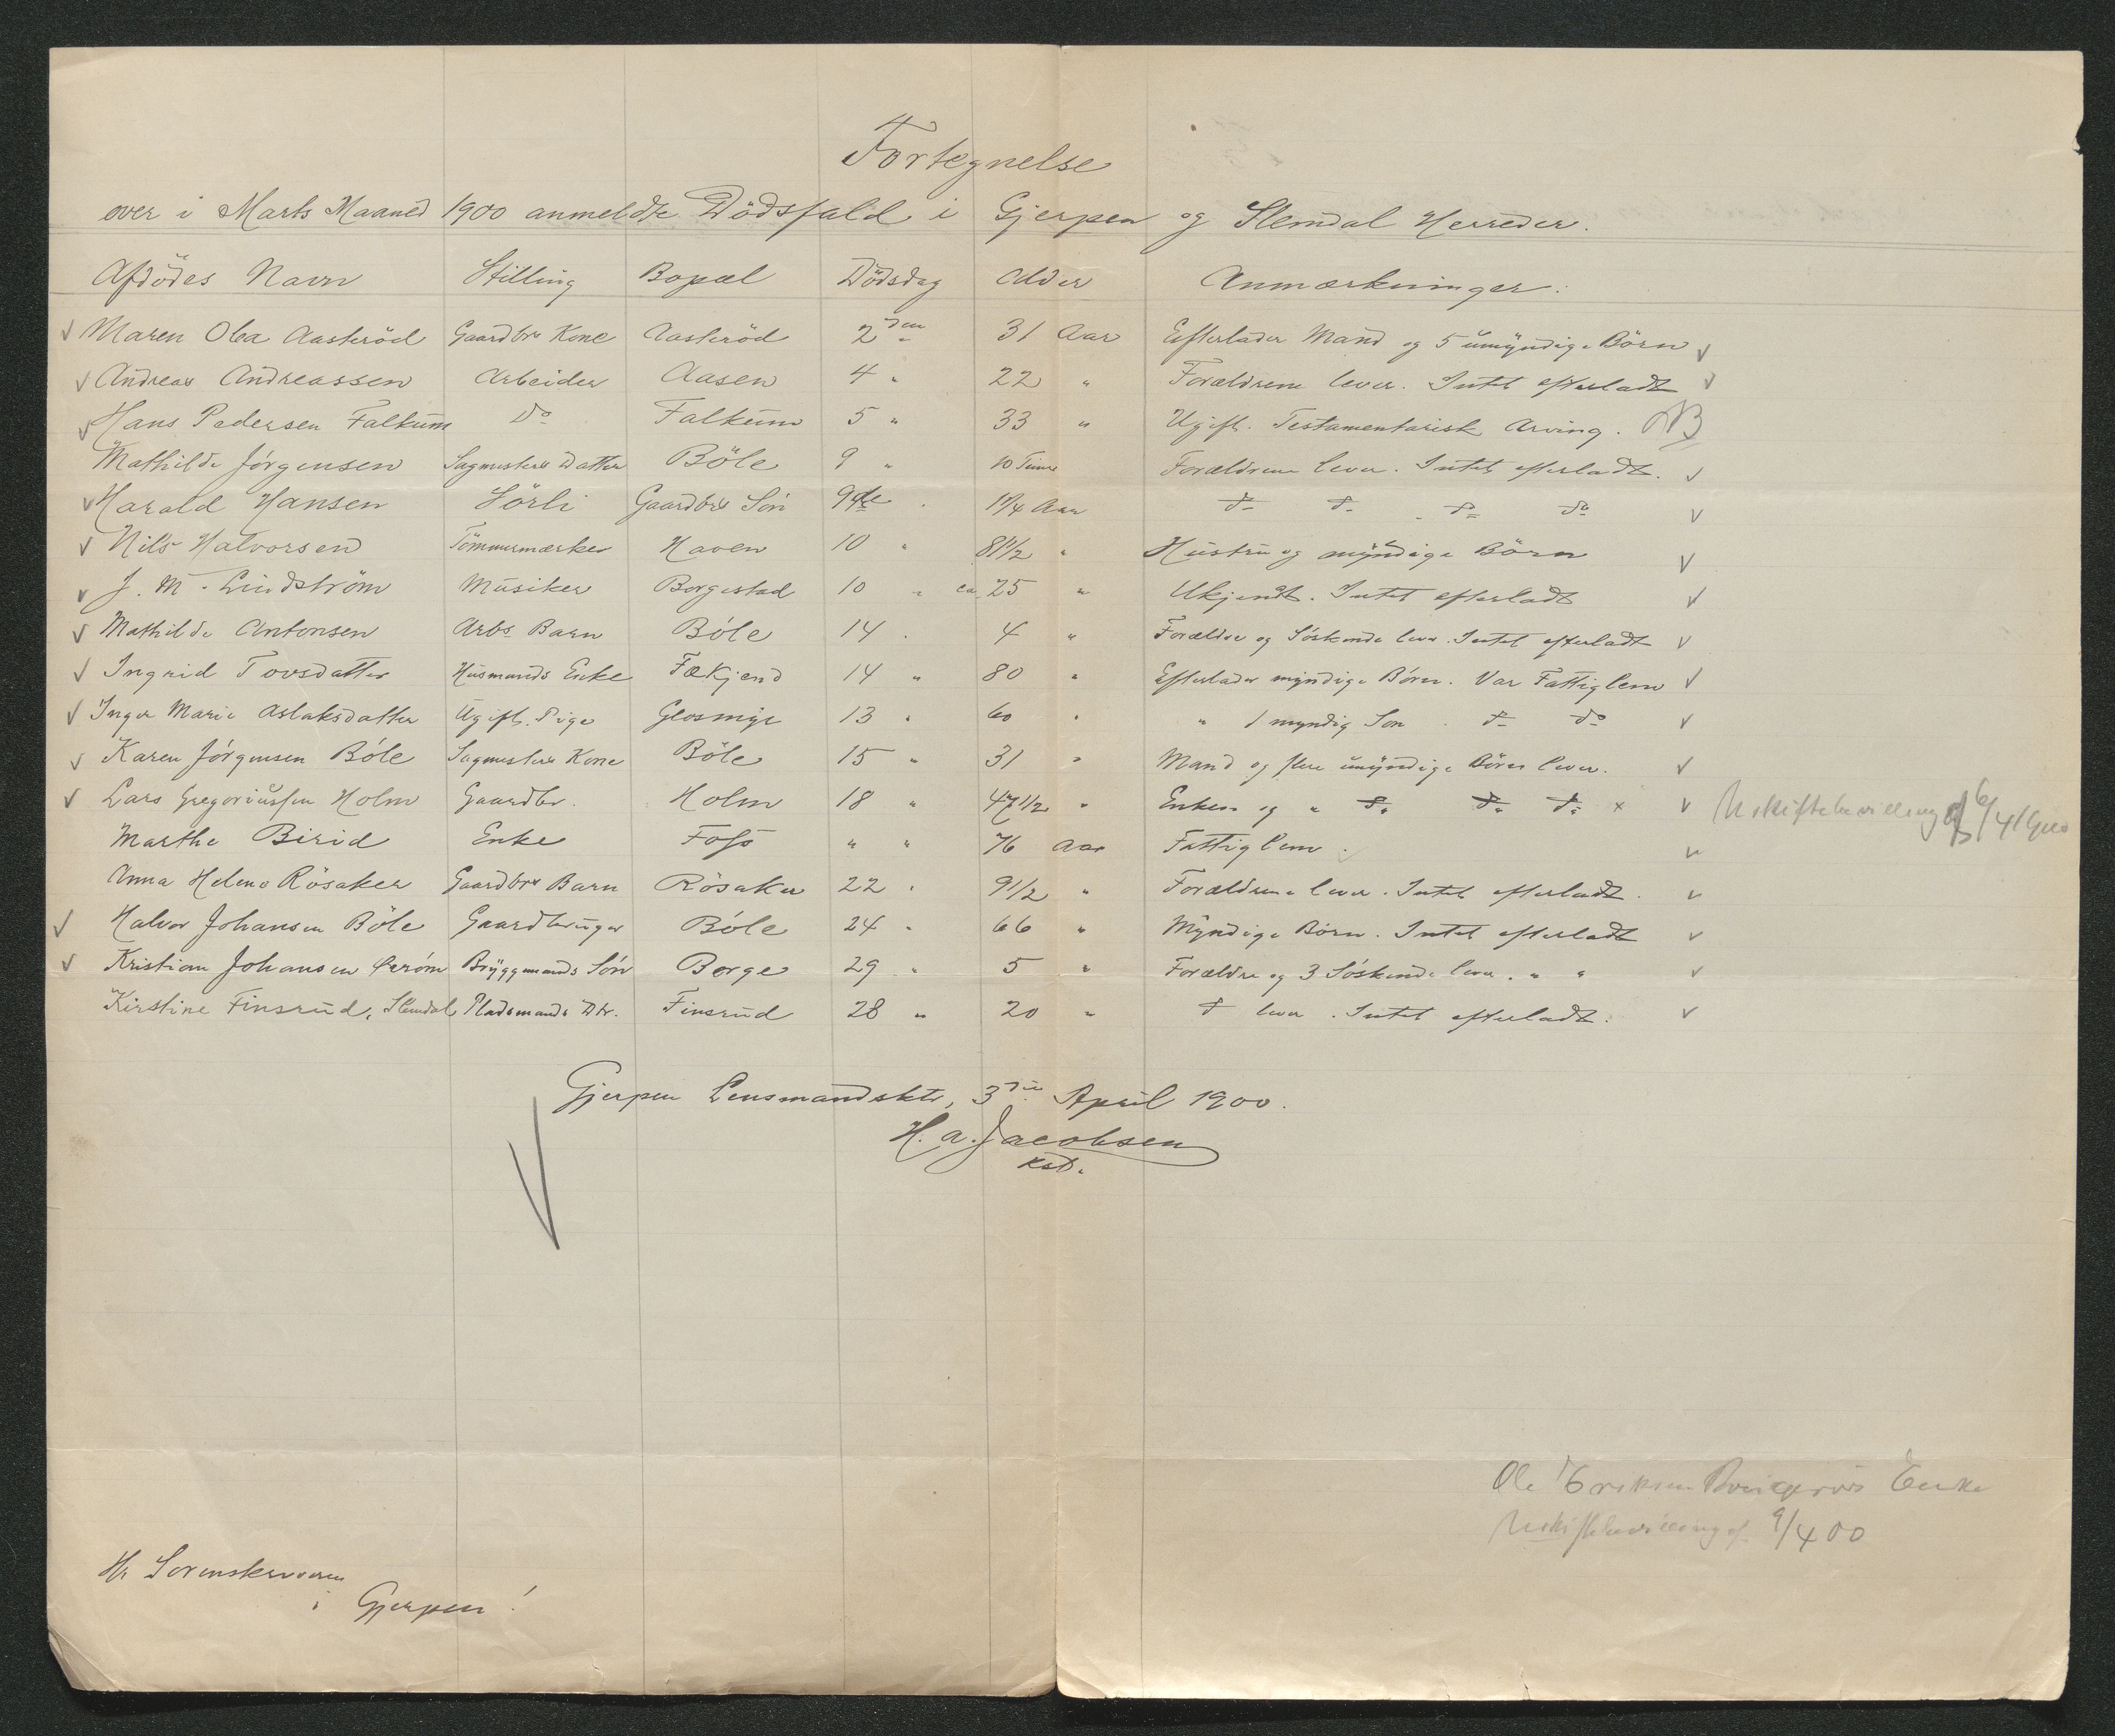 Fortegnelse
over i Marts Maaned 1900 anmeldte Dödsfald i Gjerpen og Slemdal Herreder.
Afdödes Navn Stilling Bopæl Dödsdag Alder Anmærkninger:
√ Maren Olea Aasteröd Gaardbrs Kone Aasteröd 2den 31 Aar Efterlader Mand og 5 umyndige Börn √
√ Andreas Andreassen Arbeider Aasen 4 " 22 " Forældrene lever. Intet efterladt √
√ Hans Pedersen Falkum Do Falkum 5 " 33 " Ugift. Testamentarisk Arving. NB
Mathilde Jörgensen Sagmesters Datter Böle 9 " 10 Timer Forældrene lever. Intet efterladt. √
√ Harald Hansen Sörli Gaardbrs Sön 9de 1 1/4 Aar do do do do √
√ Nils Halvorsen Tömmermærker Haven 10 " 81 1/2 " Hustru og myndige Börn √
√ J. M. Lindström Musiker Borgestad 10 " ca 25 " Ukjendt. Intet efterladt √
√ Mathilde Antonsen Arbs Barn Böle 14 " 4 " Forældre og Söskende lever. Intet efterladt √
√ Ingrid Tovsdatter Husmands Enke Fækjend 14 " 80 " Efterlader myndige Börn. Var Fattiglem √
√ Inger Marie Aslaksdatter Ugift. Pige Glosmyr 13 " 60 " " 1 myndig Sön. do do √
√ Karen Jörgensen Böle Sagmesters Kone Böle 15 " 31 " Mand og flere umyndige Börn lever. √
√ Lars Gregoriussen Holm Gaardbr. Holm 18 " 47 1/2 " Enken og " do do do × √ Uskiftebevilling af 6/4
Marthe Birid Enke Foss " " 76 Aar Fattiglem. √
Anna Helene Rösaker Gaardbrs Barn Rösaker 22 " 9 1/2 " Forældrene lever. Intet efterladt. √
√ Halvor Johansen Böle Gaardbruger Böle 24 " 66 " Myndige Börn. Intet efterladt √
√ Kristian Johansen Bryggemands Sön Borge 29 " 5 " Forældre og 3 Söskende lever. " " √
Kirstine Finsrud, Slemdal Pladsmands Dtr. Finsrud 28 " 20 " do lever. Intet efterladt. √
Gjerpen Lensmandsktr, 3die April 1900.
H. A. Jacobsen
kst.
Ole Eriksen Enke
Uskiftebevilling af 9/4 00
Hr Sorenskriveren
i Gjerpen!